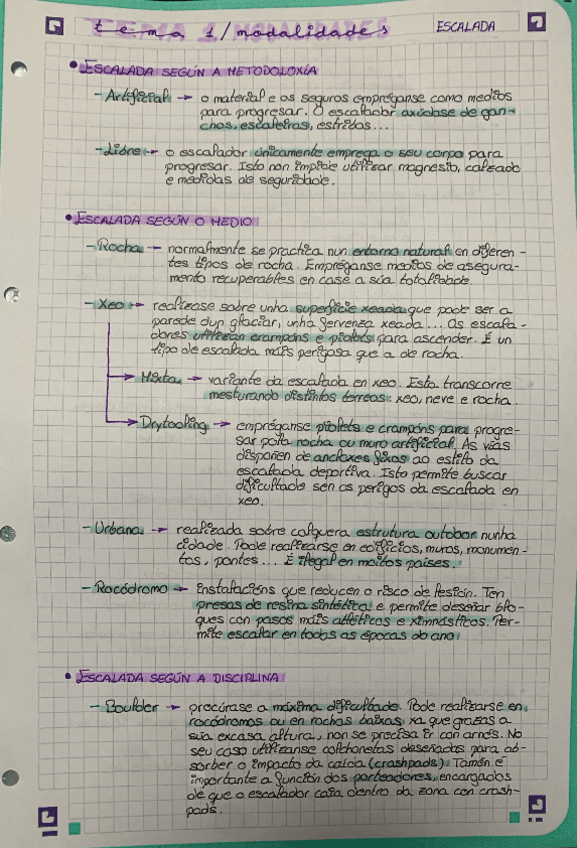 tema 1/modalidades
ESCALADA
• ESCALADA SEGÚN A METODOLOXÍA
- Artificial → o material e os seguros empréganse como medios
para progresar. O escalador axúdase de gan-
chos, escaleiras, estribos...
- Libre → o escalador únicamente emprega o seu corpo para
progresar. Isto non impide utilizar magnesio, calzado
e medidas de seguridade.
• ESCALADA SEGÚN O MEDIO
- Rocha → normalmente se practica nun entorno natural en diferen-
tes tipos de rocha. Empréganse medios de asegura-
mento recuperables en case a súa totalidade.
- Xeo → realízase sobre unha superficie xeada que pode ser a
parede dun glaciar, unha fervenza xeada... Os escala-
dores utilizan crampóns e piolets para ascender. É un
tipo de escalada máis perigosa que a de rocha.
→ Mixta → variante da escalada en xeo. Esta transcorre
mesturando distintos terreos: xeo, neve e rocha.
→ Drytooling → empréganse piolets e crampóns para progre-
sar pola rocha ou muro artificial. As vías
dispoñen de anclaxes fixos ao estilo da
escalada deportiva. Isto permite buscar
dificultade sen os perigos da escalada en
xeo.
- Urbana → realizada sobre calquera estrutura outdoor nunha
cidade. Pode realizarse en edificios, muros, monumen-
tos, pontes... É ilegal en moitos países.
- Rocódromo → instalacións que reducen o risco de lesión. Ten
presas de resina sintética e permite deseñar blo-
ques con pasos máis atléticos e ximnásticos. Per-
mite escalar en todas as épocas do ano.
• ESCALADA SEGÚN A DISCIPLINA
- Boulder → procúrase a máxima dificultade. Pode realizarse en
rocódromos ou en rochas baixas, xa que grazas a
súa escasa altura, non se precisa ir con arnés. No
seu caso utilízanse colchonetas deseñadas para ab-
sorber o impacto da caída (crashpads). Tamén é
importante a función dos porteadores, encargados
de que o escalador caia dentro da zona con crash-
pads.